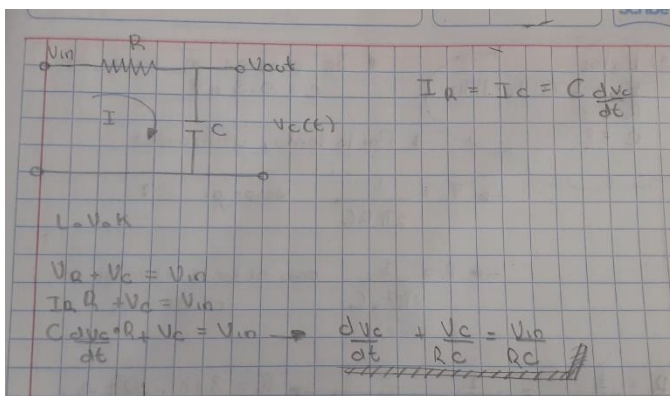 Vin R Vout
I C Vc(t)
IR = IC = C dvc/dt
L.V.K
VR + VC = Vin
IR R + VC = Vin
C dvc/dt • R + VC = Vin → dvc/dt + Vc/RC = Vin/RC